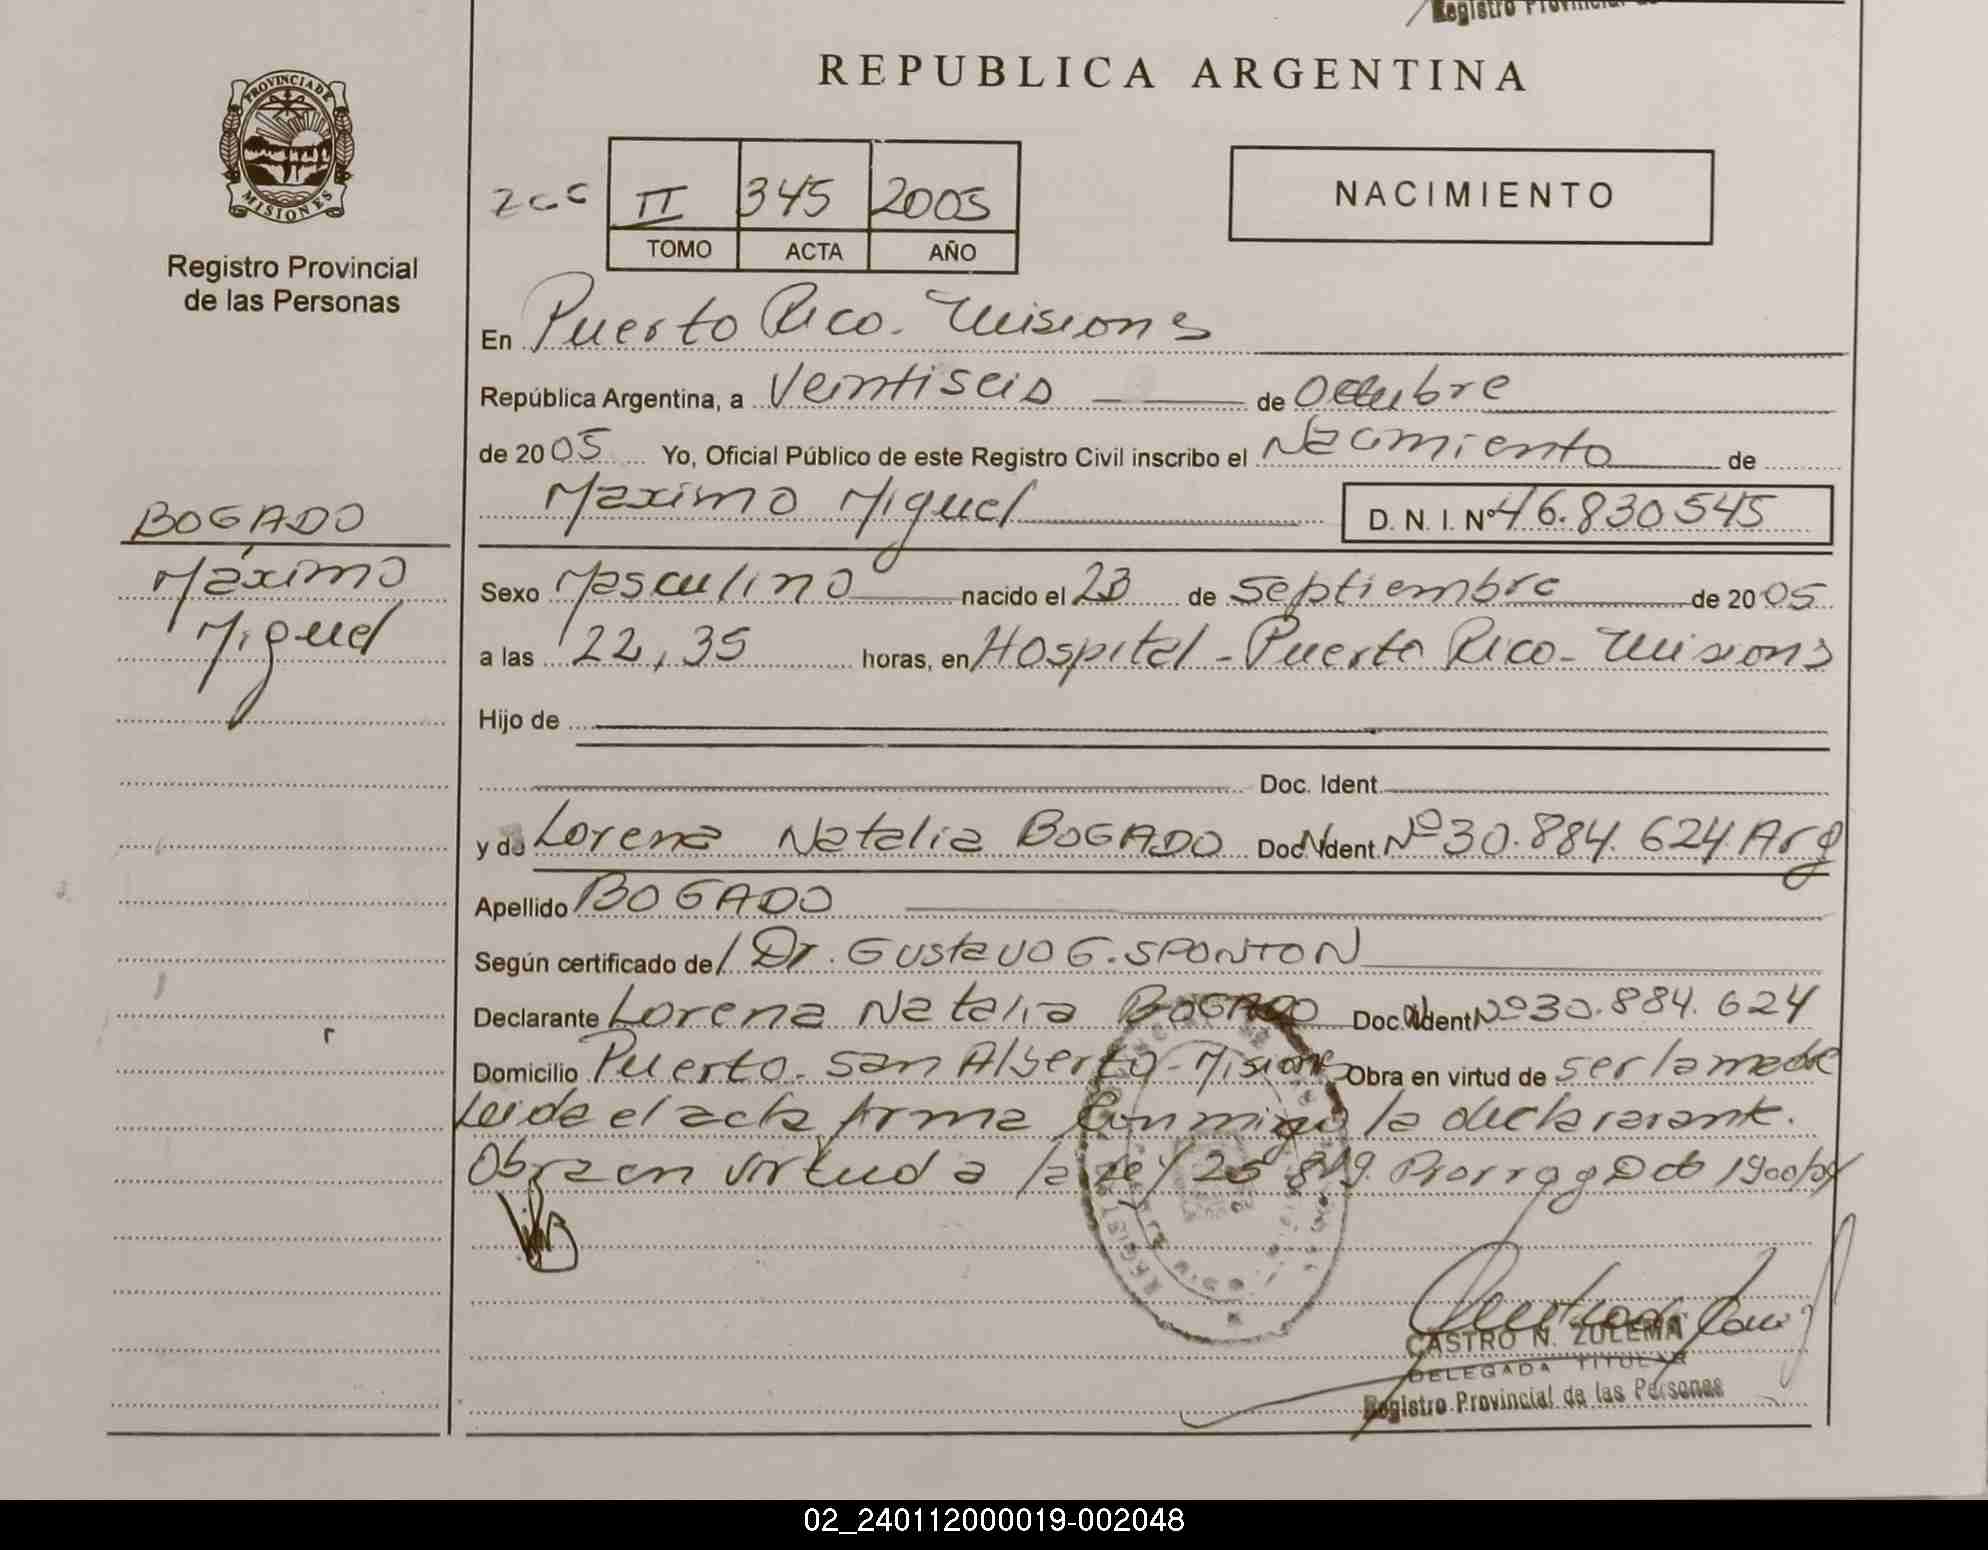 Registro Provincial de
REPUBLICA ARGENTINA
PROVINCIA DE
MISIONES
Registro Provincial
de las Personas
II 345 2005
TOMO ACTA AÑO
NACIMIENTO
En Puerto Rico - Misiones
República Argentina, a Veintiseis de Octubre
de 2005 Yo, Oficial Público de este Registro Civil inscribo el Nacimiento de
Maximo Miguel D. N. I. Nº 46.830545
BOGADO
Máximo
Miguel
Sexo Masculino nacido el 23 de Septiembre de 2005
a las 22,35 horas, en Hospital - Puerto Rico - Misiones
Hijo de
Doc. Ident.
y de Lorena Natalia BOGADO Doc. Ident. Nº 30.884.624 Arg
Apellido BOGADO
Según certificado de Dr. Gustavo G. SPONTON
Declarante Lorena Natalia BOGADO Doc. Ident Nº 30.884.624
Domicilio Puerto San Alberto - Misiones Obra en virtud de ser la madre
Leida el acta firma conmigo la declararante.
Obra en virtud a la ley 25 819. Prorrog Dcto 1900/04
CASTRO N. ZULEMA
DELEGADA TITULAR
Registro Provincial de las Personas
02_240112000019-002048